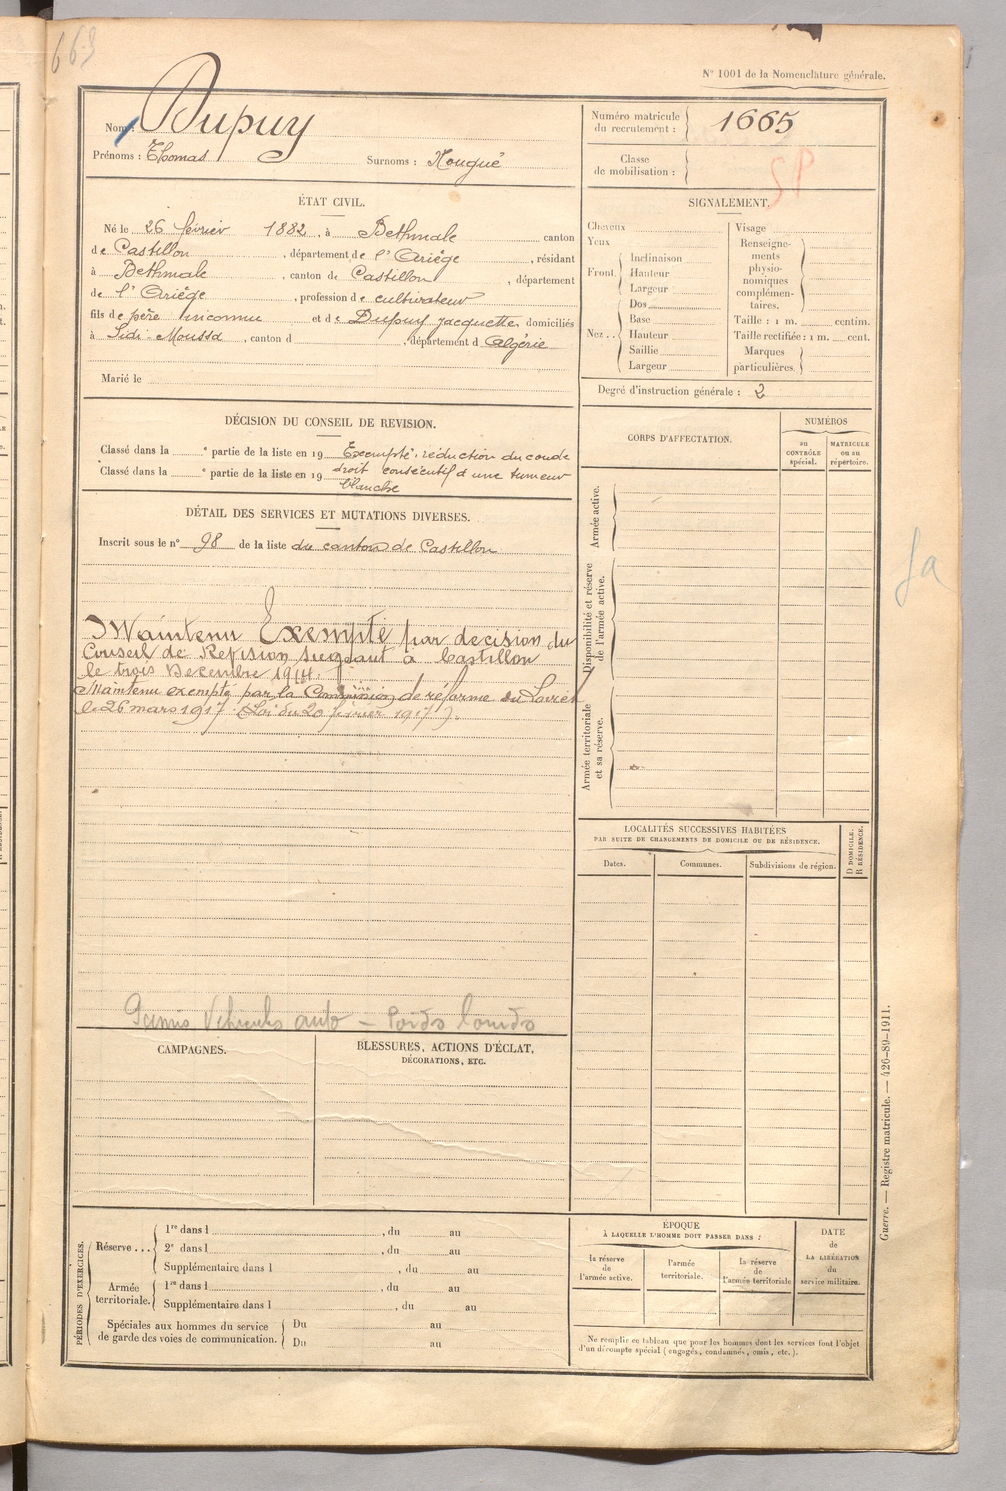 663
N° 1001 de la Nomenclature générale.
Nom : Dupuy
Prénoms : Thomas Surnoms : Nougué
Numéro matricule du recrutement : 1665
Classe de mobilisation :
SP
ÉTAT CIVIL.
Né le 26 février 1882, à Bethmale canton
de Castillon, département de l'Ariège, résidant
à Bethmale, canton de Castillon, département
de l'Ariège, profession de cultivateur
fils de père inconnu et de Dupuy Jacquette, domiciliés
à Sidi-Moussa, canton d , département d Algérie
Marié le
SIGNALEMENT.
Cheveux
Yeux
Front. Inclinaison
Hauteur
Largeur
Nez .. Dos
Base
Hauteur
Saillie
Largeur
Visage
Renseigne-
ments
physio-
nomiques
complémen-
taires.
Taille : 1 m. centim.
Taille rectifiée : 1 m. cent.
Marques
particulières.
Degré d'instruction générale : 2
DÉCISION DU CONSEIL DE REVISION.
Classé dans la e partie de la liste en 19 Exempté, réduction du coude
Classé dans la e partie de la liste en 19 droit consécutif d'une tumeur
blanche
DÉTAIL DES SERVICES ET MUTATIONS DIVERSES.
Inscrit sous le n° 98 de la liste du canton de Castillon
Maintenu Exempté par décision du
Conseil de Révision siégeant à Castillon
le trois Décembre 1914.
Maintenu exempté par la Commission de réforme du Loiret
le 26 mars 1917 (Loi du 20 février 1917).
Permis Véhicules auto - Poids lourds
CORPS D'AFFECTATION.
NUMÉROS
au CONTRÔLE spécial.
MATRICULE ou au répertoire.
Armée active.
Disponibilité et réserve de l'armée active.
Armée territoriale et sa réserve.
LOCALITÉS SUCCESSIVES HABITÉES
PAR SUITE DE CHANGEMENTS DE DOMICILE OU DE RÉSIDENCE.
Dates.
Communes.
Subdivisions de région.
D DOMICILE.
R RÉSIDENCE.
CAMPAGNES.
BLESSURES, ACTIONS D'ÉCLAT,
DÉCORATIONS, ETC.
PÉRIODES D'EXERCICES.
Réserve ...
1re dans l , du au
2e dans l , du au
Supplémentaire dans l , du au
Armée territoriale.
1re dans l , du au
Supplémentaire dans l , du au
Spéciales aux hommes du service
de garde des voies de communication.
Du au
Du au
ÉPOQUE
À LAQUELLE L'HOMME DOIT PASSER DANS :
la réserve de l'armée active.
l'armée territoriale.
la réserve de l'armée territoriale
DATE
de
LA LIBÉRATION
du
service militaire.
Ne remplir ce tableau que pour les hommes dont les services font l'objet
d'un décompte spécial (engagés, condamnés, omis, etc.).
Guerre. — Registre matricule. — 426-89-1911.